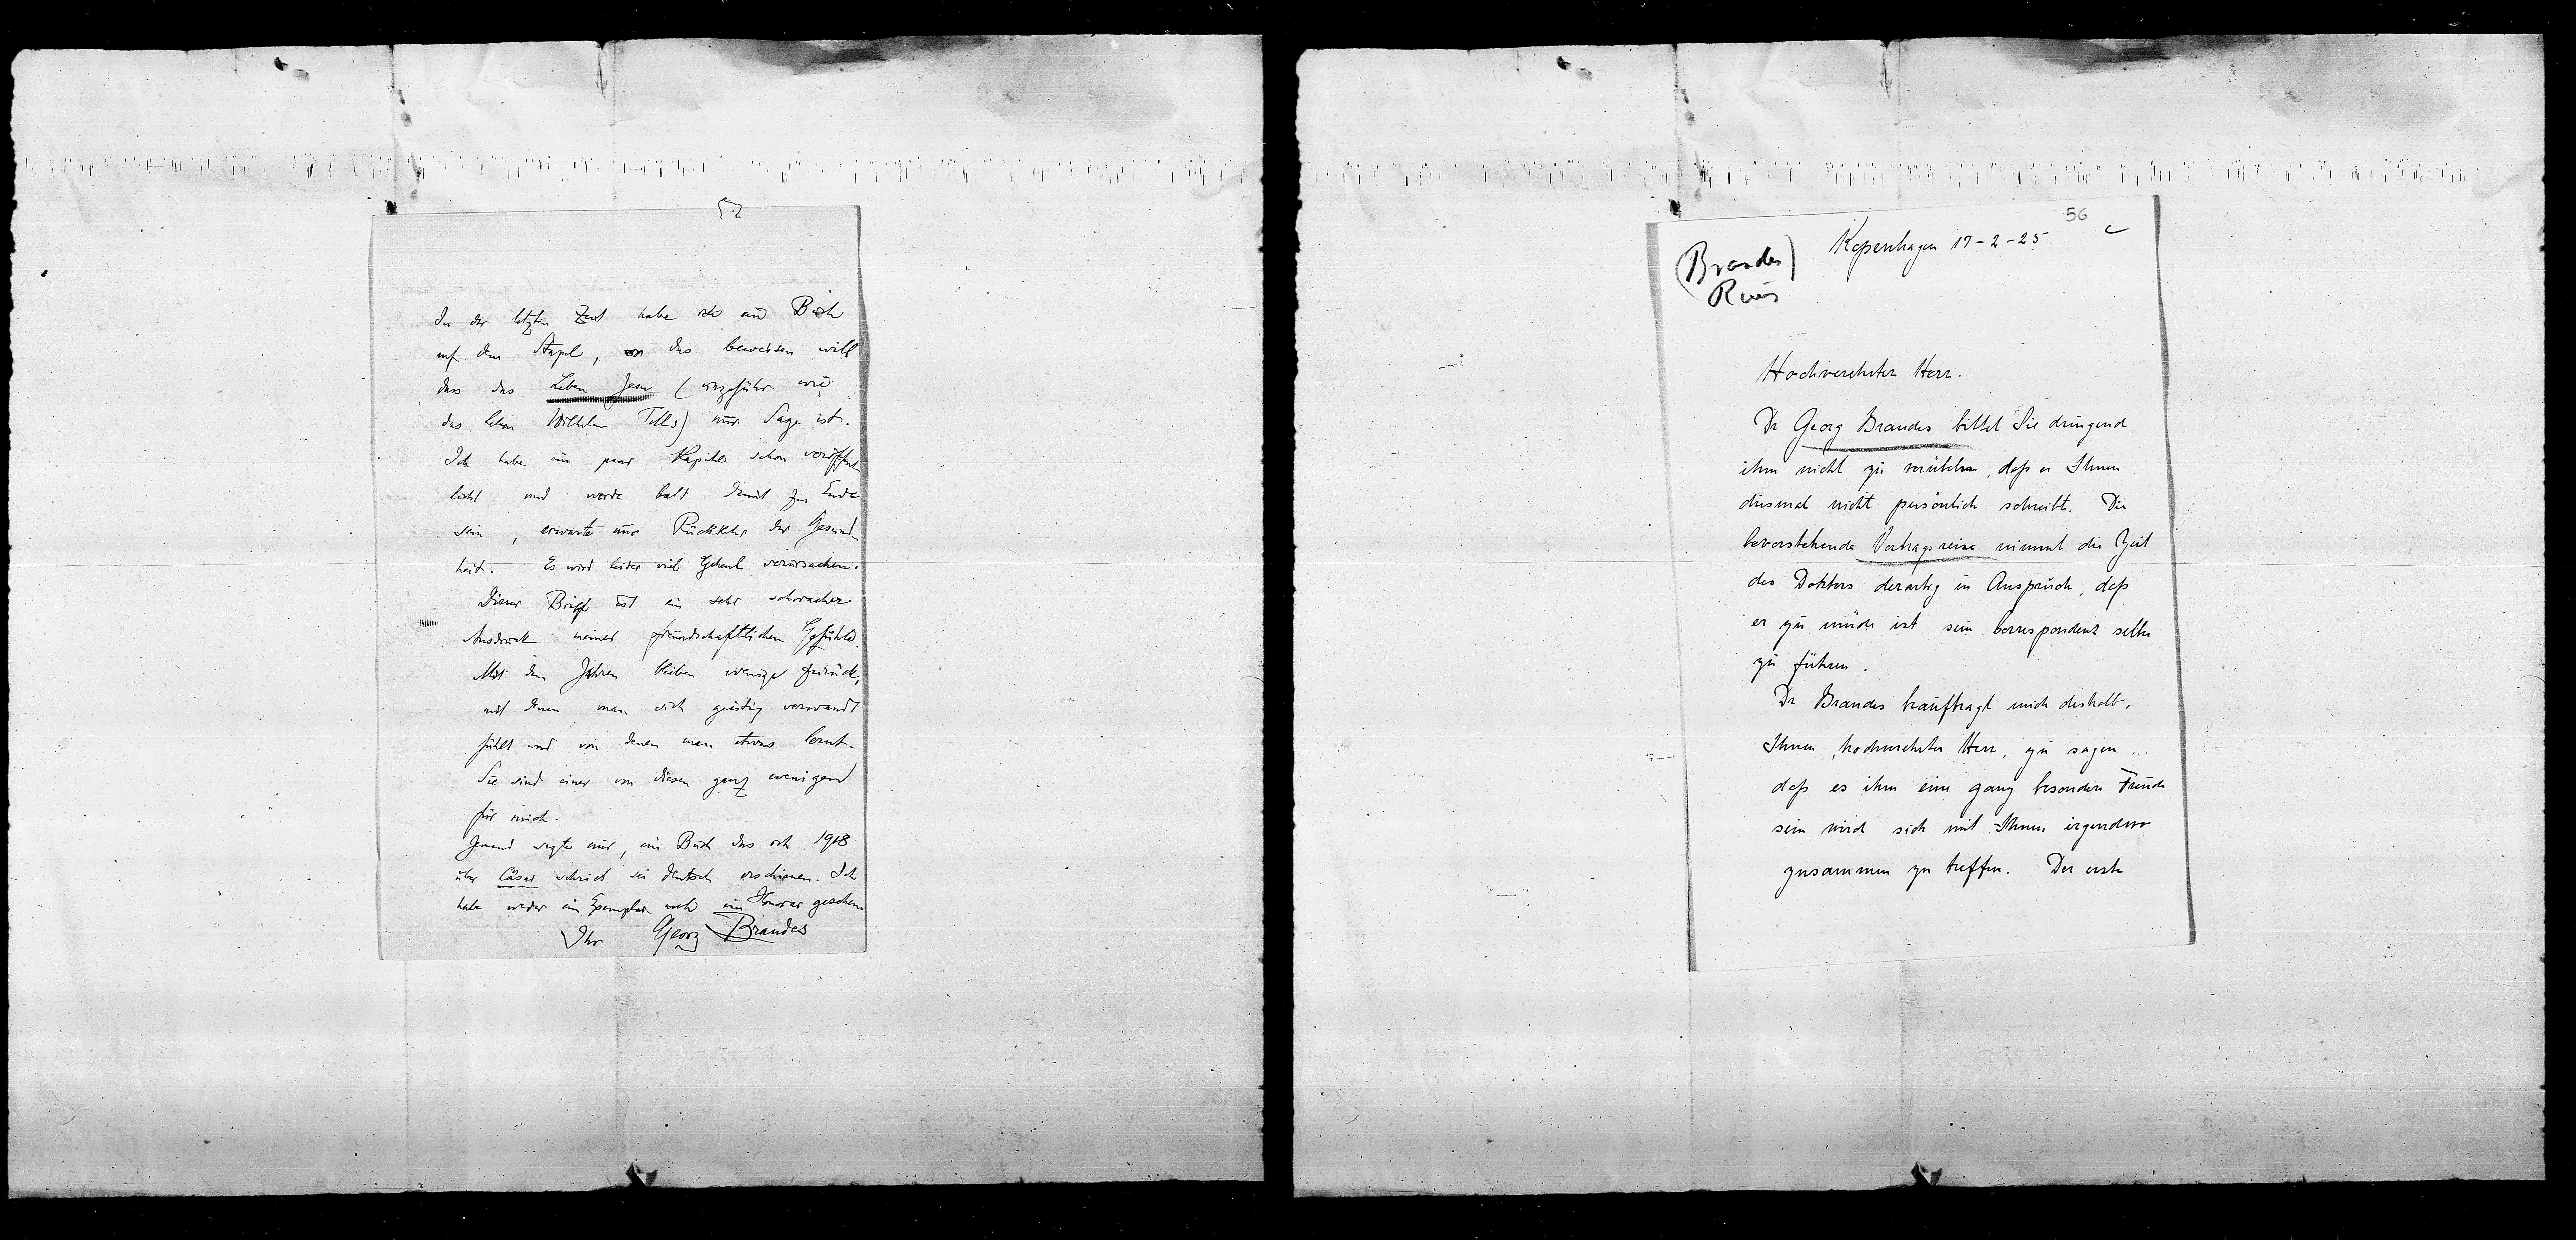 In der letzten Zeit habe ich ein Buch
auf dem Stapel, das beweisen will
dass das Leben Jesu (ungefähr wie
das Leben Wilhelm Tells) nur Sage ist.
Ich habe ein paar Kapitel schon veröffent
licht und werde bald damit zu Ende
sein, erwarte nur Rückkehr der Gesund-
heit. Es wird leider viel Geheul verursachen.
Dieser Brief ist ein sehr schwacher
Ausdruck meiner freundschaftlichen Gefühle.
Mit den Jahren bleiben wenige zurück,
mit denen man sich geistig verwandt
fühlt und von denen man etwas lernt.
Sie sind einer von diesen ganz wenigen
für mich.
Jemand sagte mir, ein Buch das ich 1918
über Cäsar schrieb sei deutsch erschienen. Ich
habe weder ein Exemplar noch ein Honorar gesehen
Ihr Georg Brandes
56
c
Kopenhagen 17-2-25
(Brandes)
Hochverehrter Herr.
Dr Georg Brandes bittet Sie dringend
ihm nicht zu verübeln, daß er Ihnen
diesmal nicht persönlich schreibt. Die
bevorstehende Vortragsreise nimmt die Zeit
des Doktors derartig in Anspruch, daß
er zu müde ist sein Correspondenz selber
zu führen.
Dr Brandes beauftragt mich deshalb,
Ihnen, hochverehrter Herr, zu sagen
daß es ihm eine ganz besondere Freude
sein wird sich mit Ihnen irgendwo
zusammen zu treffen. Der erste